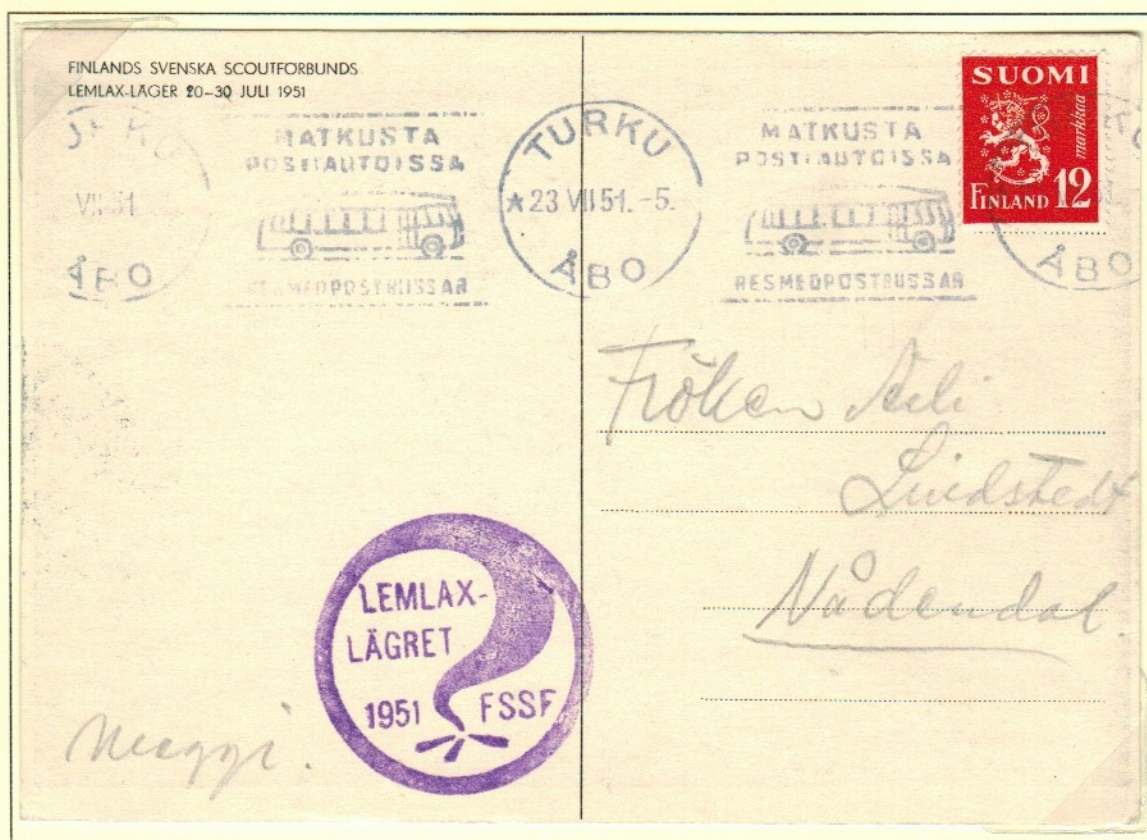 FINLANDS SVENSKA SCOUTFÖRBUNDS
LEMLAX-LÄGER 20–30 JULI 1951
TURKU
VII 51
ÅBO
MATKUSTA
POSTIAUTOISSA
RES MED POSTBUSSAR
TURKU
23 VII 51. -5.
ÅBO
MATKUSTA
POSTIAUTOISSA
RES MED POSTBUSSAR
ÅBO
SUOMI
markkaa
FINLAND 12
Fröken Aili
Lindstedt
Nådendal.
LEMLAX-
LÄGRET
1951 FSSF